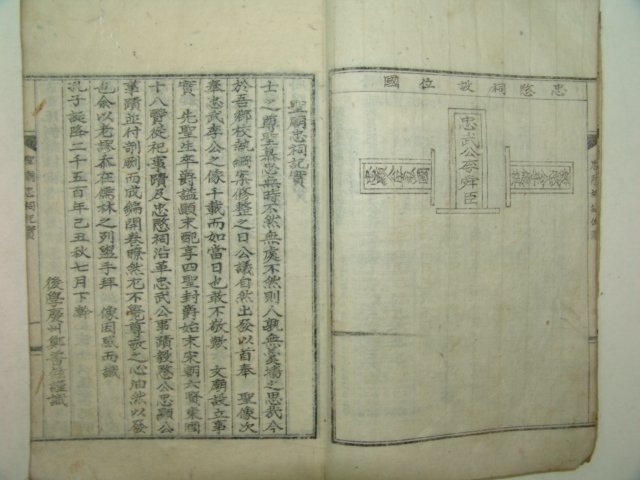 忠愍祠設位圖
忠武公李舜臣
聖廟忠祠記實
士之尊聖慕忠無時不然無處不然則人孰無羹墻之思哉今
於吾鄉校執綱案修整之日公議自然出發以首奉 聖像次
奉忠武李公之像千載而如當日也敢不敬歟 文廟設立事
實 先聖生卒爵諡顚末配享四聖封爵始末宋朝六賢東國
十八賢從祀事蹟及忠愍祠沿革忠武公事蹟毅愍公忠顯公
事蹟並付剞劂而成編開卷瞭然尤不覺尊敬之心油然以發
也余以老孱忝在儒林之列盥手拜 像因感而識
孔子誕降二千五百年己丑秋七月下澣
後學慶州鄭 謹識
聖廟忠祠記實